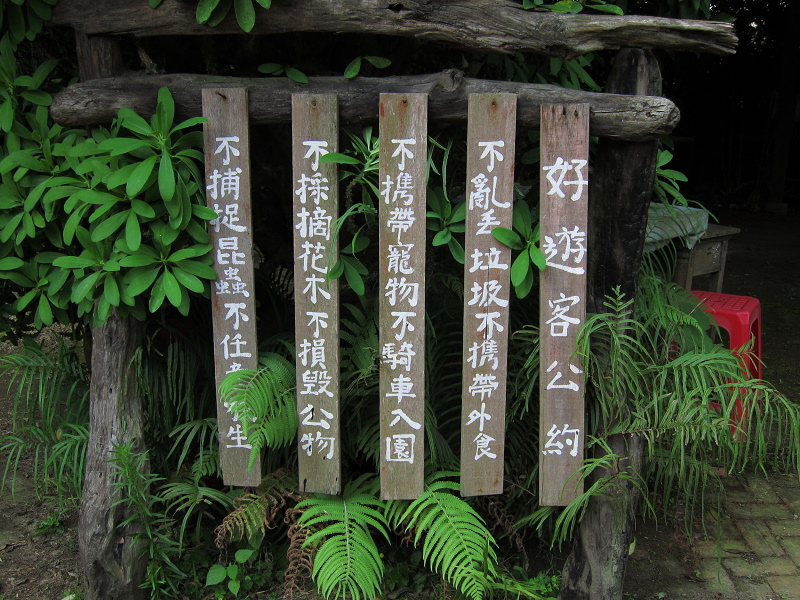 好遊客公約
不亂丟垃圾不携帶外食
不携帶寵物不騎車入園
不採摘花木不損毀公物
不捕捉昆蟲不任生